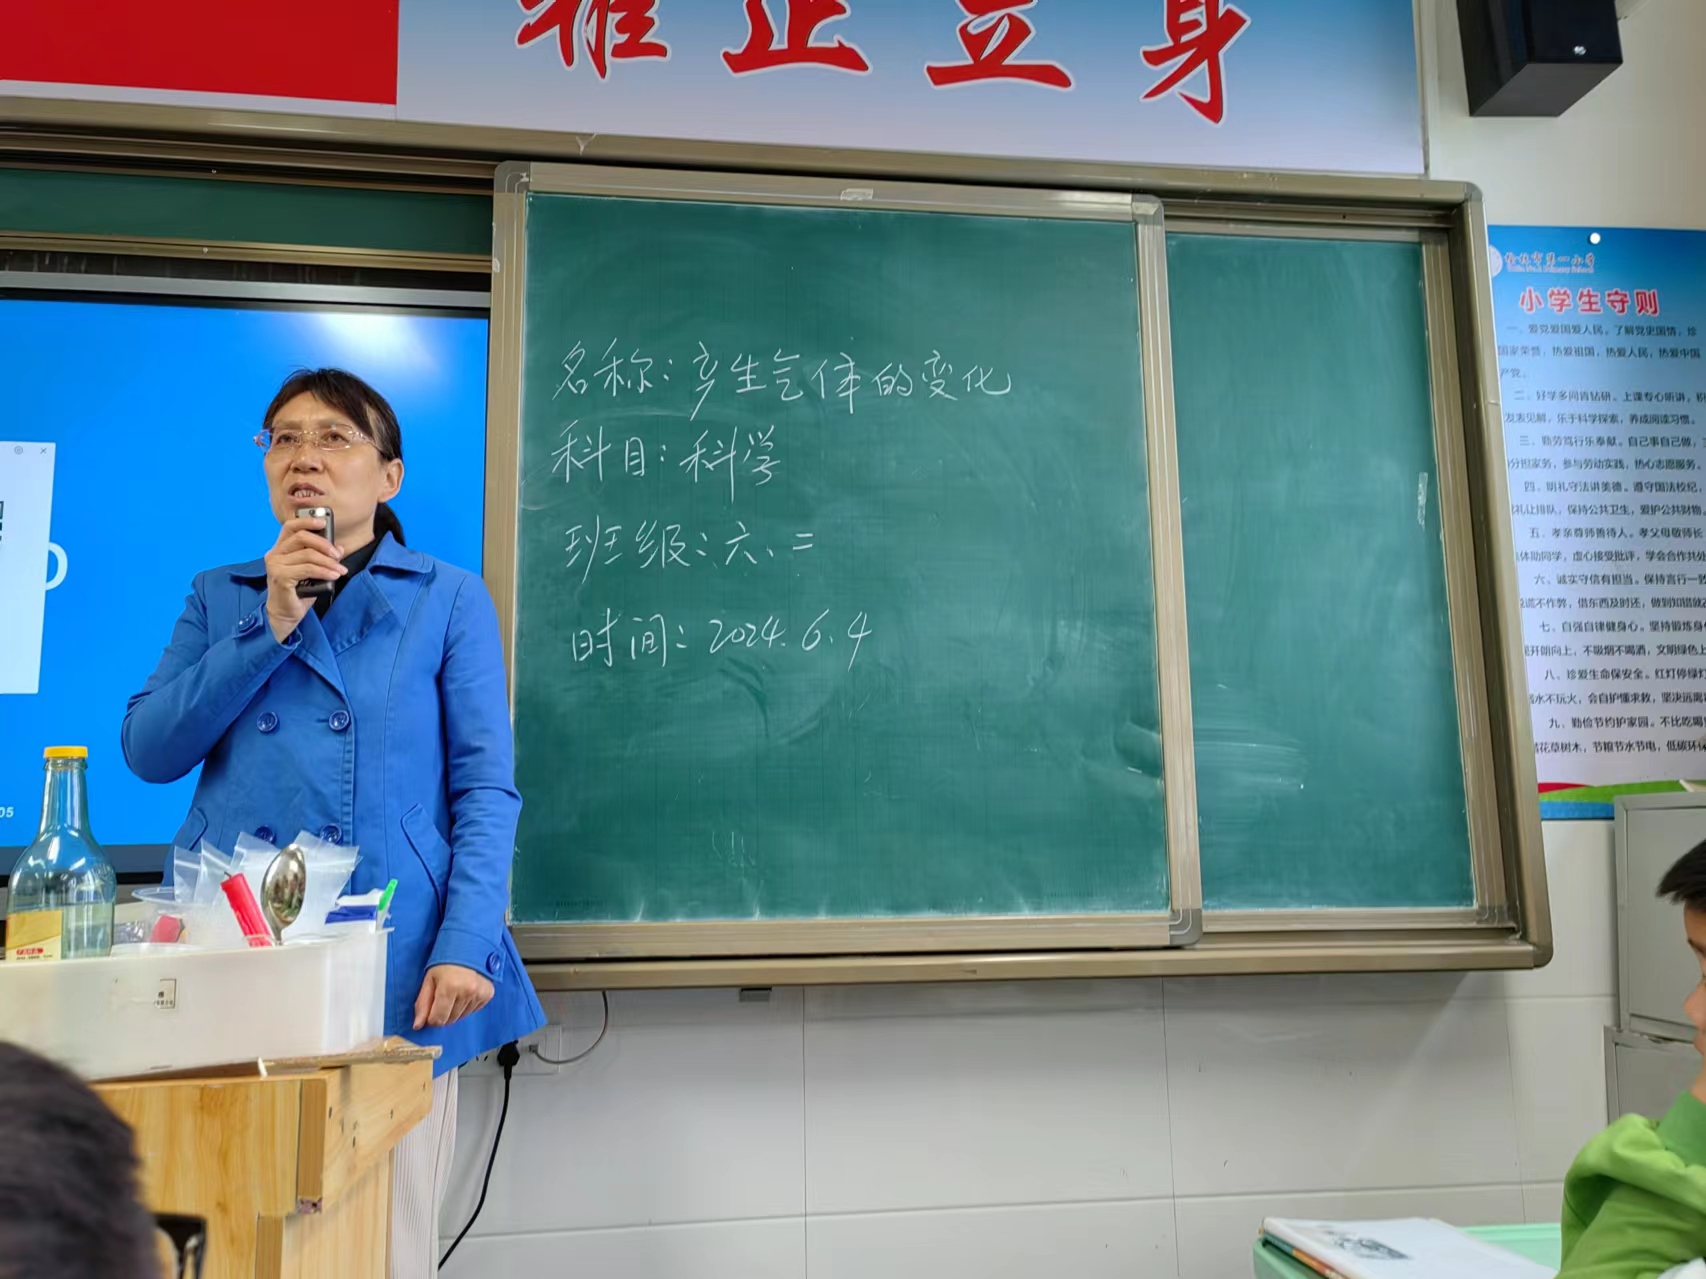 雅正立身
名称:产生气体的变化
科目:科学
班级:六、二
时间:2024.6.4
榆林市第一小学
小学生守则
一、爱党爱国爱人民。了解党史国情,珍
国家荣誉,热爱祖国,热爱人民,热爱中国
产党。
二、好学多问肯钻研。上课专心听讲,积
发表见解,乐于科学探索,养成阅读习惯。
三、勤劳笃行乐奉献。自己事自己做,
分担家务,参与劳动实践,热心志愿服务。
四、明礼守法讲美德。遵守国法校纪,
礼让排队,保持公共卫生,爱护公共财物。
五、孝亲尊师善待人。孝父母敬师长
体助同学,虚心接受批评,学会合作共处
六、诚实守信有担当。保持言行一致
说谎不作弊,借东西及时还,做到知错就
七、自强自律健身心。坚持锻炼身
开朗向上,不吸烟不喝酒,文明绿色上
八、珍爱生命保安全。红灯停绿灯
溺水不玩火,会自护懂求救,坚决远离
九、勤俭节约护家园。不比吃喝
花草树木,节粮节水节电,低碳环保
05